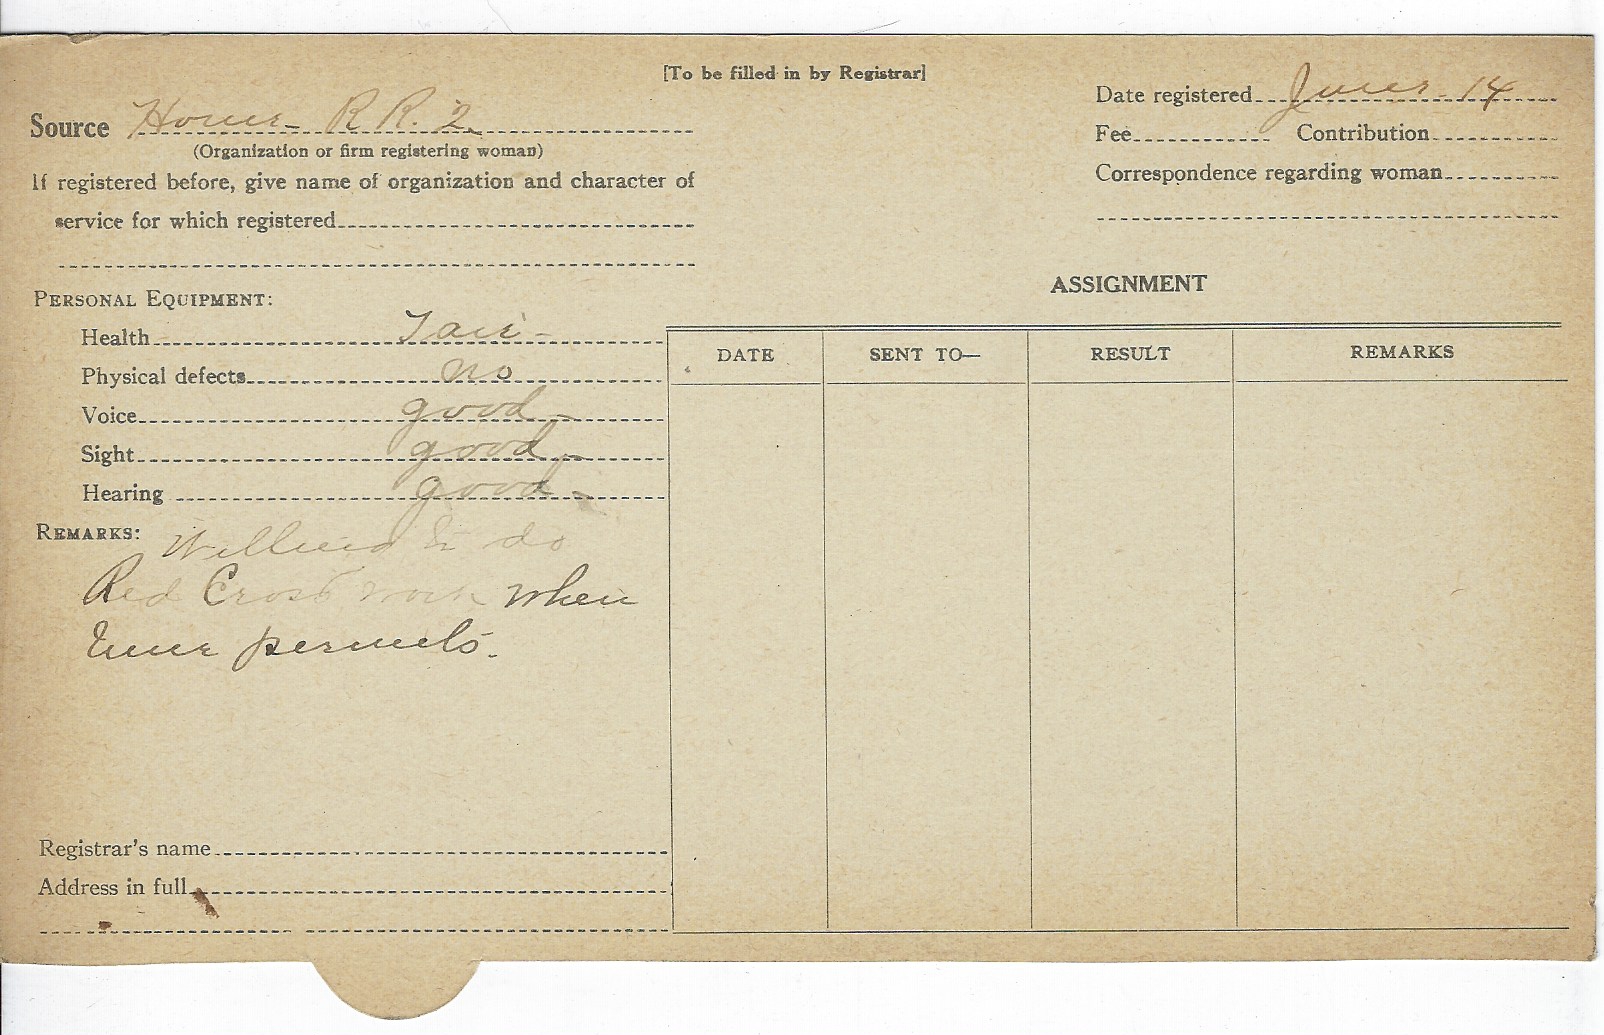 [To be filled in by Registrar]
Source Home R R. 2.
(Organization or firm registering woman)
If registered before, give name of organization and character of
service for which registered
Date registered June 14
Fee Contribution
Correspondence regarding woman
PERSONAL EQUIPMENT:
Health Fair
Physical defects no
Voice good
Sight good
Hearing good
REMARKS: Willing to do
Red Cross work when
time permits.
Registrar's name
Address in full
ASSIGNMENT
DATE SENT TO— RESULT REMARKS